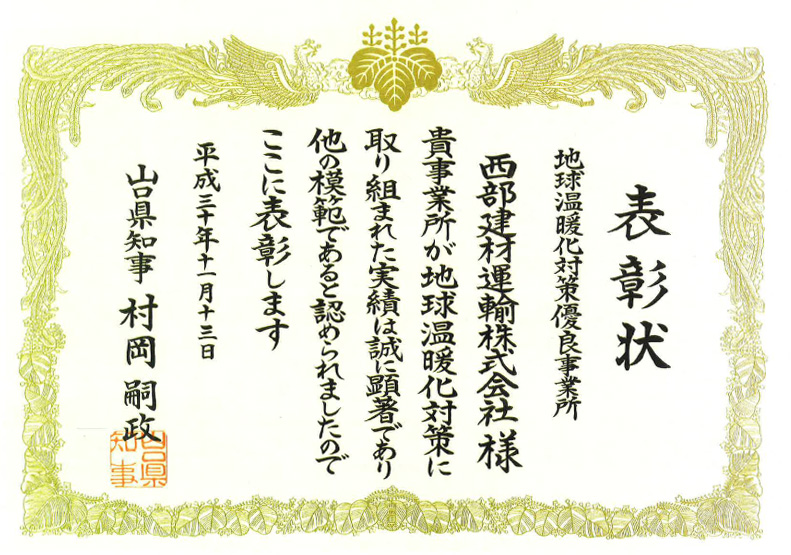 表彰状
地球温暖化対策優良事業所
西部建材運輸株式会社 様
貴事業所が地球温暖化対策に
取り組まれた実績は誠に顕著であり
他の模範であると認められましたので
ここに表彰します
平成三十年十一月十三日
山口県知事 村岡嗣政
山口県
知事